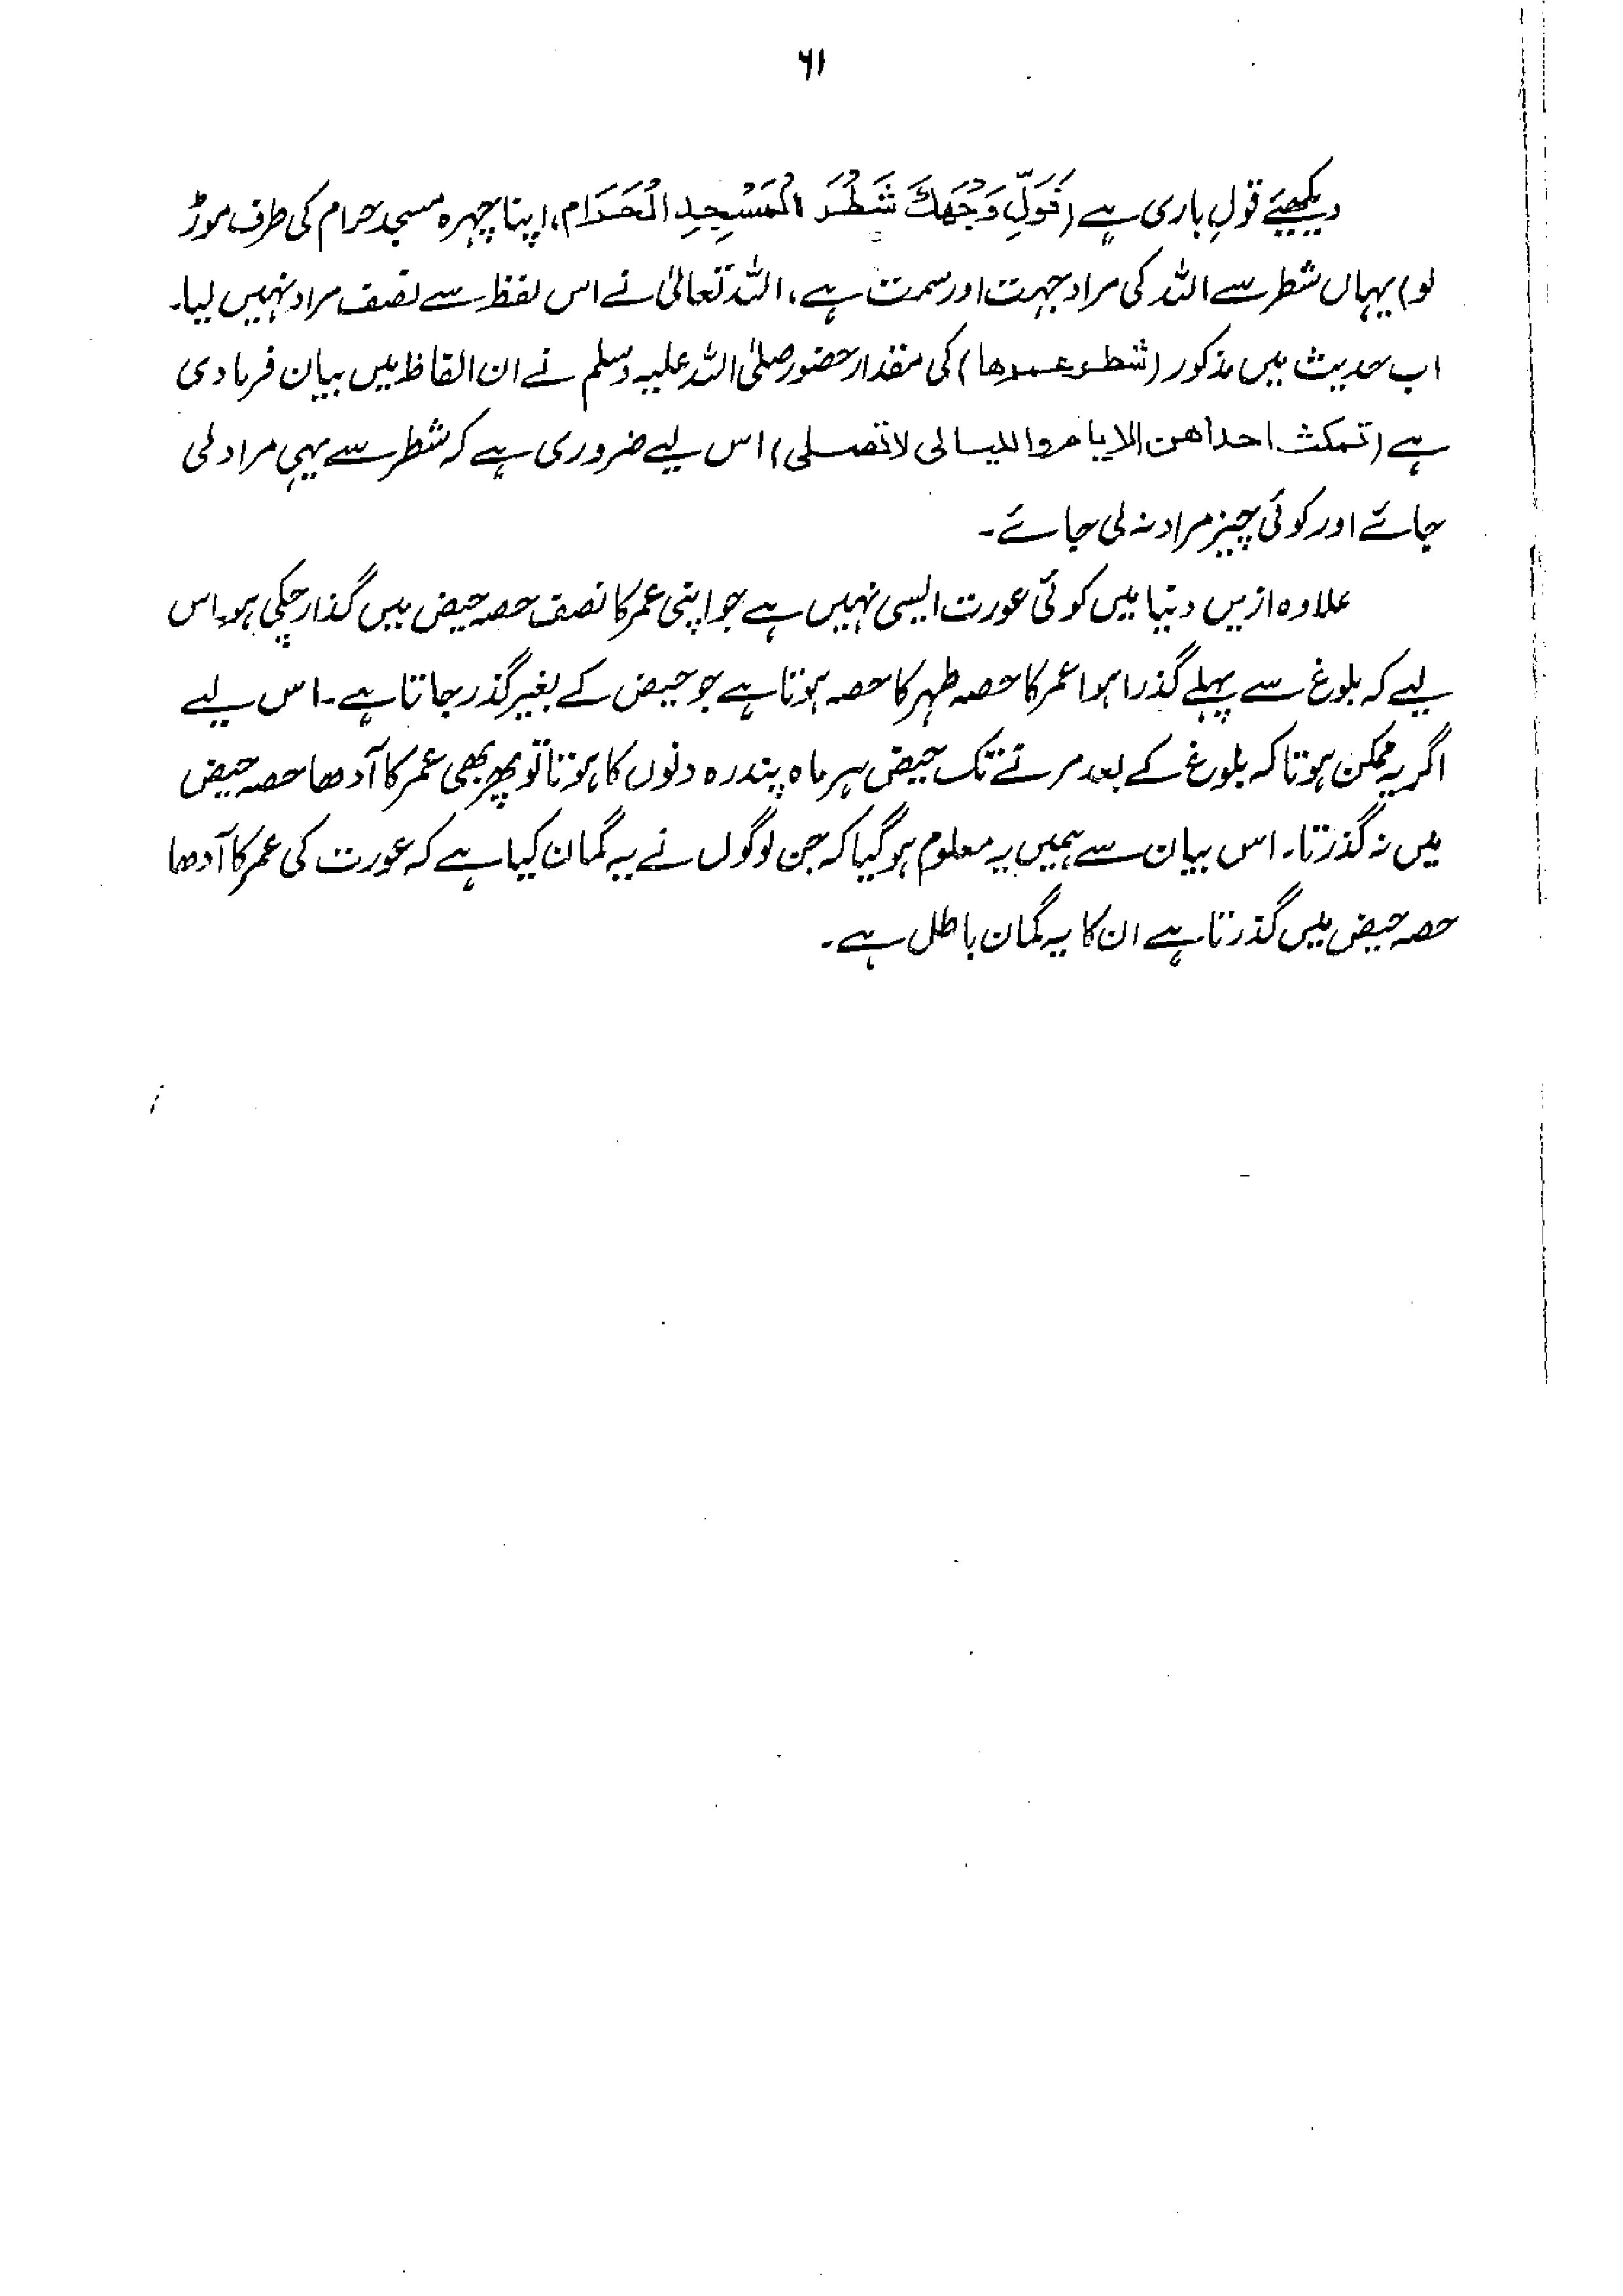 ۶۱
دیکھیئے قولِ باری ہے (فَوَلِّ وَجْهَكَ شَطْرَ الْمَسْجِدِ الْحَرَامِ، اپنا چہرہ مسجد حرام کی طرف موڑ
لو) یہاں شطر سے اللہ کی مراد جہت اور سمت ہے، اللہ تعالیٰ نے اس لفظ سے نصف مراد نہیں لیا۔
اب حدیث میں مذکور (شطر عمرها) کی مقدار حضور صلی اللہ علیہ وسلم نے ان الفاظ میں بیان فرما دی
ہے (تمکث احداهن الایام واللیالی لاتصلی) اس لیے ضروری ہے کہ شطر سے یہی مراد لی
جائے اور کوئی چیز مراد نہ لی جائے۔
علاوہ ازیں دنیا میں کوئی عورت ایسی نہیں ہے جو اپنی عمر کا نصف حصہ حیض میں گذار چکی ہو۔ اس
لیے کہ بلوغ سے پہلے گذرا ہوا عمر کا حصہ طہر کا حصہ ہوتا ہے جو حیض کے بغیر گذر جاتا ہے۔ اس لیے
اگر یہ ممکن ہوتا کہ بلوغ کے بعد مرتے تک حیض ہر ماہ پندرہ دنوں کا ہوتا تو پھر بھی عمر کا آدھا حصہ حیض
میں نہ گذرتا۔ اس بیان سے ہمیں یہ معلوم ہو گیا کہ جن لوگوں نے یہ گمان کیا ہے کہ عورت کی عمر کا آدھا
حصہ حیض میں گذرتا ہے ان کا یہ گمان باطل ہے۔